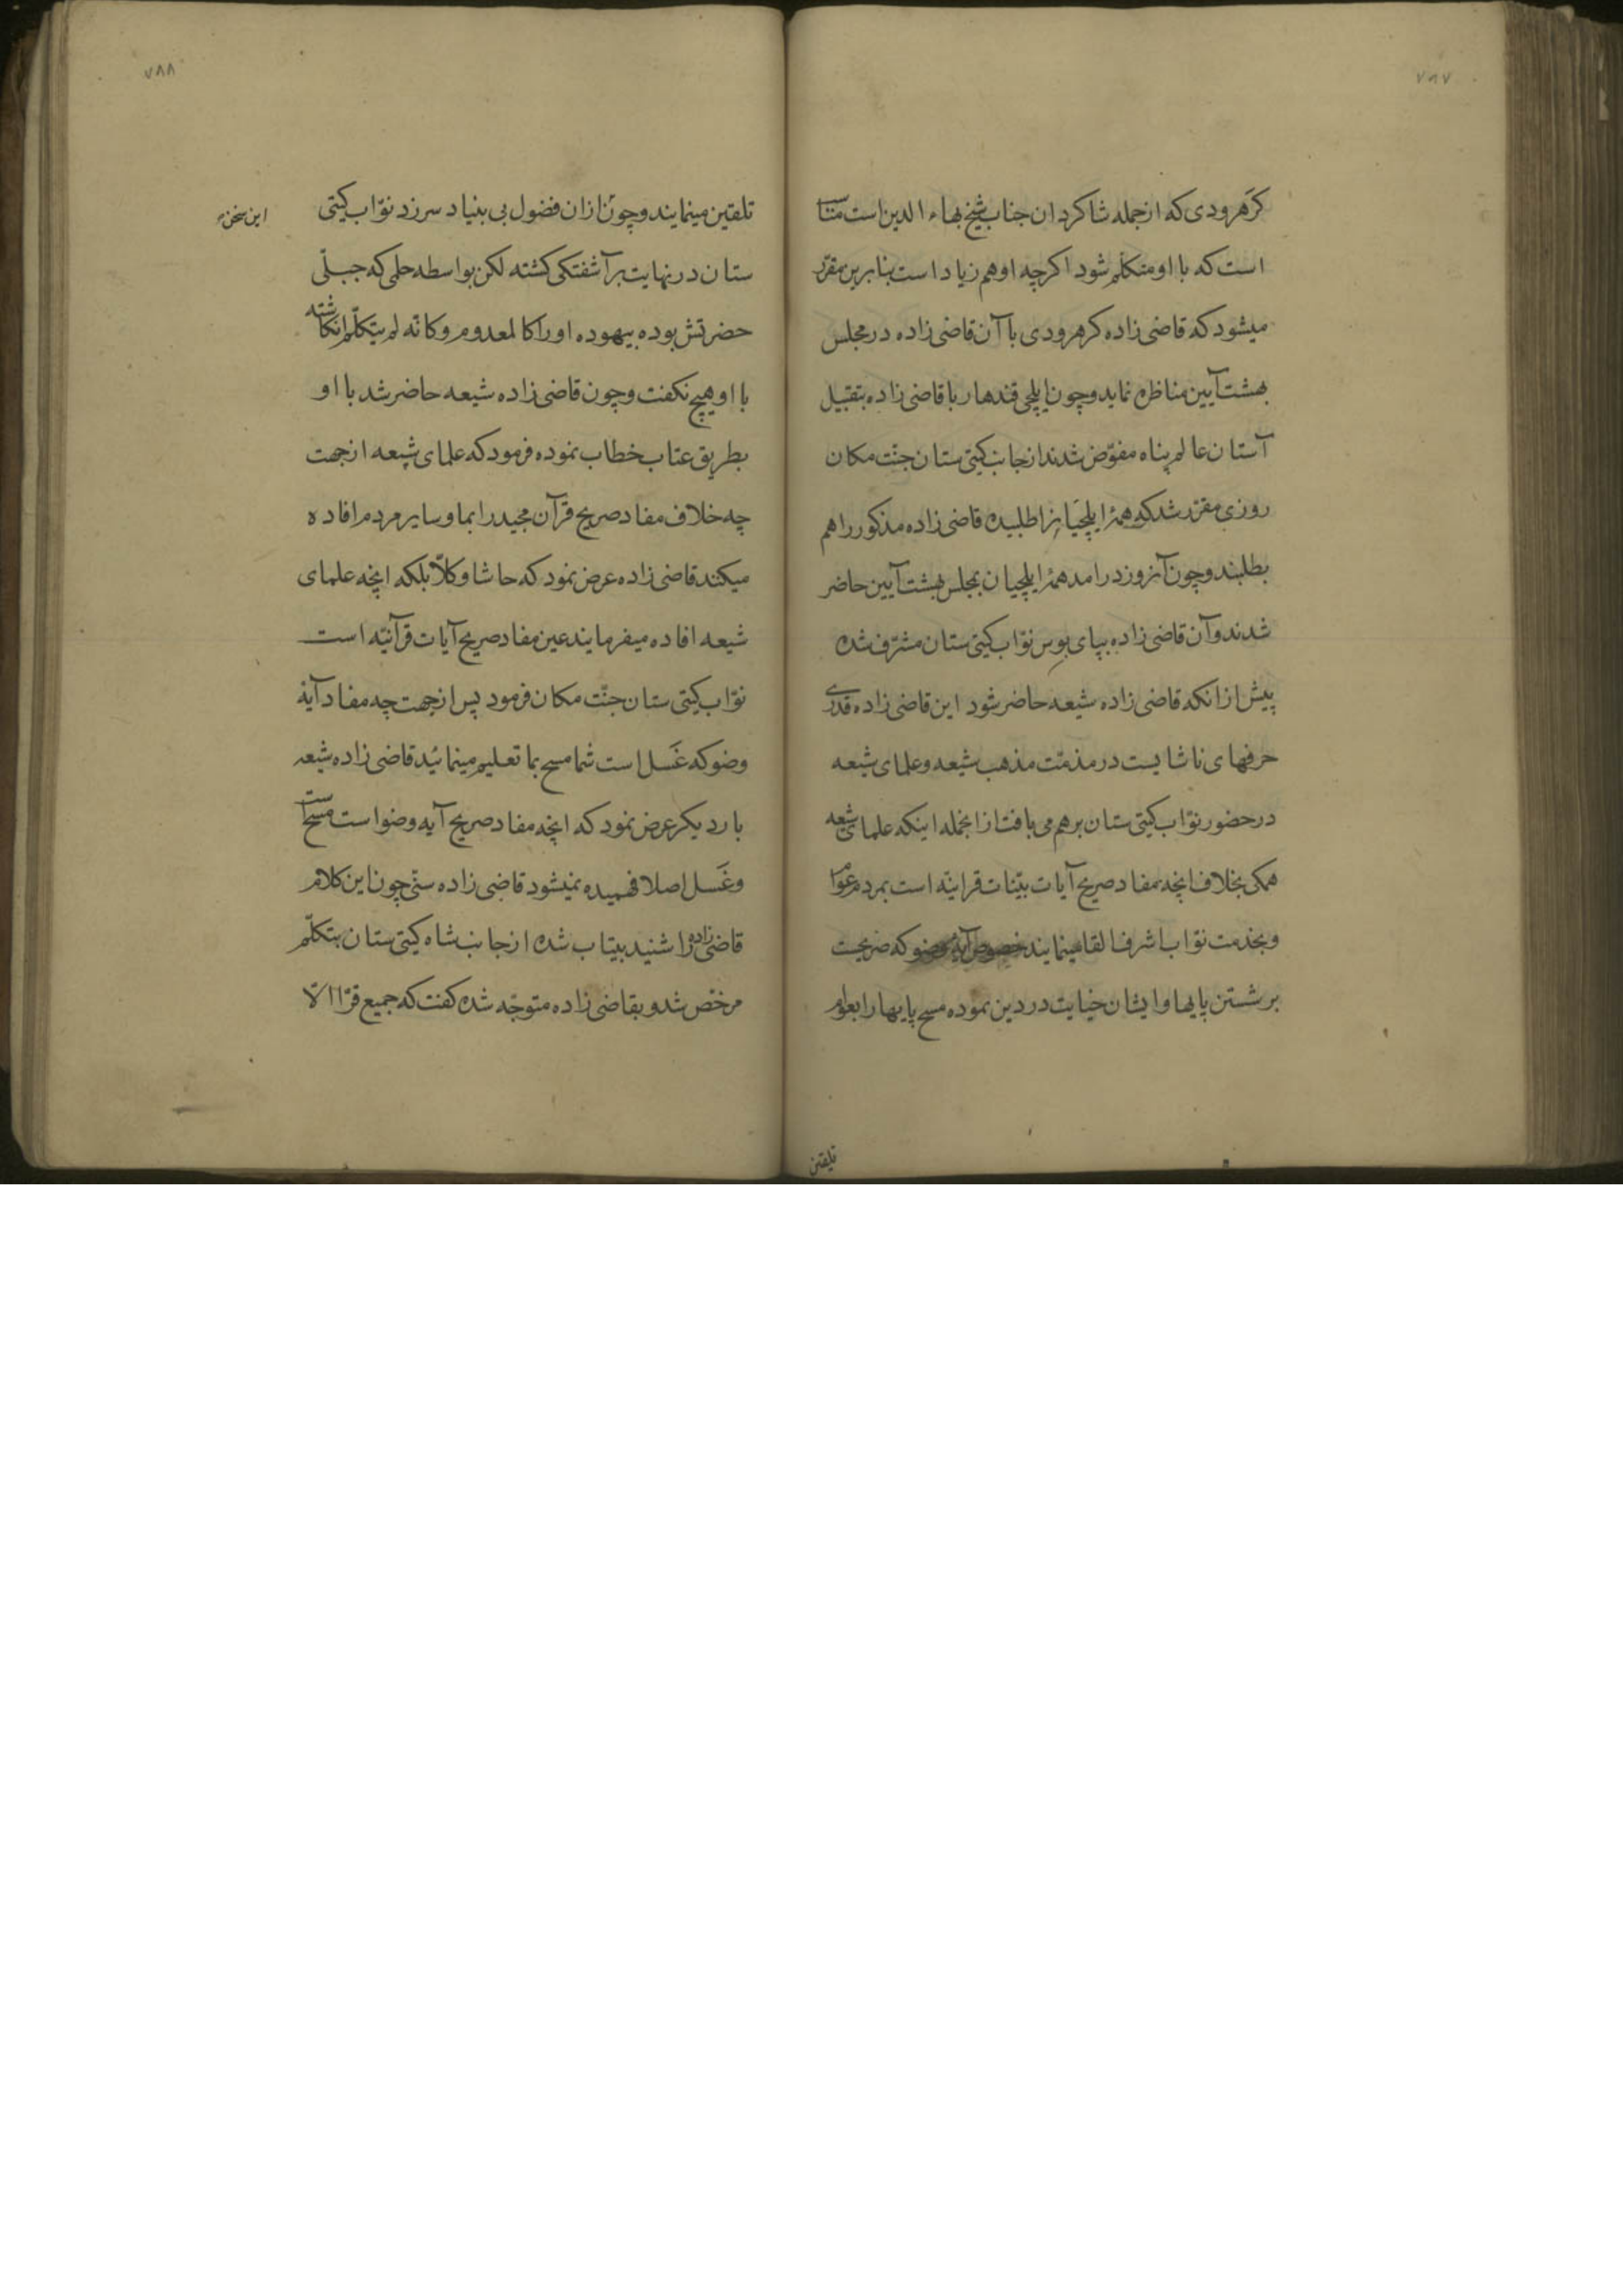 ۷۸۷
کرهرودی که ازجمله شاکردان جناب شیخ بهاء الدین است مناسب
است که با او متکلم شود اکرچه او هم زیاد است بنابرین مقرّر
میشود که قاضی زاده کرهرودی با آن قاضی زاده در مجلس
بهشت آیین مناظره نماید و چون ایلچی قندهار با قاضی زاده بتقبیل
آستان عالم پناه مفوّض شدند از جانب کیتی ستان جنّت مکان
روزی مقرّر شد که همهٔ ایلچیانرا طلبیده قاضی زاده مذکور را هم
بطلبند و چون آنروز درامد همهٔ ایلچیان بمجلس بهشت آیین حاضر
شدند و آن قاضی زاده بپای بوس نوّاب کیتی ستان مشرّف شده
پیش ازانکه قاضی زاده شیعه حاضر شود این قاضی زاده قدری
حرفهای ناشایست در مذمّت مذهب شیعه و علمای شیعه
درحضور نوّاب کیتی ستان برهم می بافت ازانجمله اینکه علمای شیعه
همکی بخلاف انچه مفاد صریح آیات بیّنات قرانیّه است بمردم عوام
و بخدمت نوّاب اشرف القا مینمایند خصوص آیه وضو که صریحست
بر شستن پایها و ایشان خیانت در دین نموده مسح پایها را بعوام
تلقین
۷۸۸
تلقین مینمایند و چون ازان فضول بی بنیاد سرزد نوّاب کیتی
این سخن
ستان درنهایت برآشفتکی کشته لکن بواسطه حلمی که جبلّی
حضرتش بوده بیهوده او را کالمعدوم و کانّه لم یتکلّم انکاشته
با او هیچ نکفت و چون قاضی زاده شیعه حاضر شد با او
بطریق عتاب خطاب نموده فرمود که علمای شیعه ازجهت
چه خلاف مفاد صریح قرآن مجید را بما و سایر مردم افاده
میکنند قاضی زاده عرض نمود که حاشا و کلاّ بلکه انچه علمای
شیعه افاده میفرمایند عین مفاد صریح آیات قرآنیّه است
نوّاب کیتی ستان جنّت مکان فرمود پس ازجهت چه مفاد آیهٔ
وضو که غَسل است شما مسح بما تعلیم مینمائید قاضی زاده شیعه
بار دیکر عرض نمود که انچه مفاد صریح آیه وضو است مسح است
و غَسل اصلا فهمیده نمیشود قاضی زاده سنّی چون این کلام
قاضی زاده را شنید بیتاب شده ازجانب شاه کیتی ستان بتکلّم
مرخّص شد و بقاضی زاده متوجّه شده کفت که جمیع قرّا الاّ